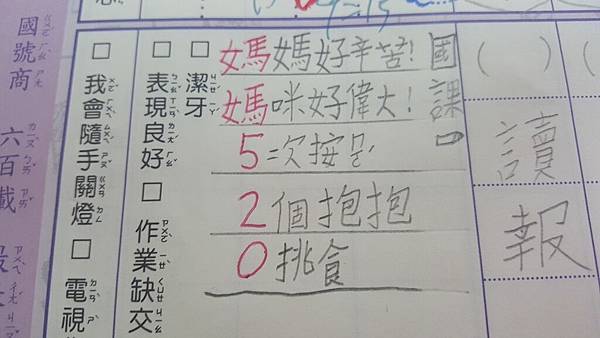 國號商 六百載
□我會隨手關燈 □電視
□表現良好 □作業缺交
□潔牙
媽媽好辛苦!
媽咪好偉大!
5次按
2個抱抱
0挑食
國課
( )
讀報